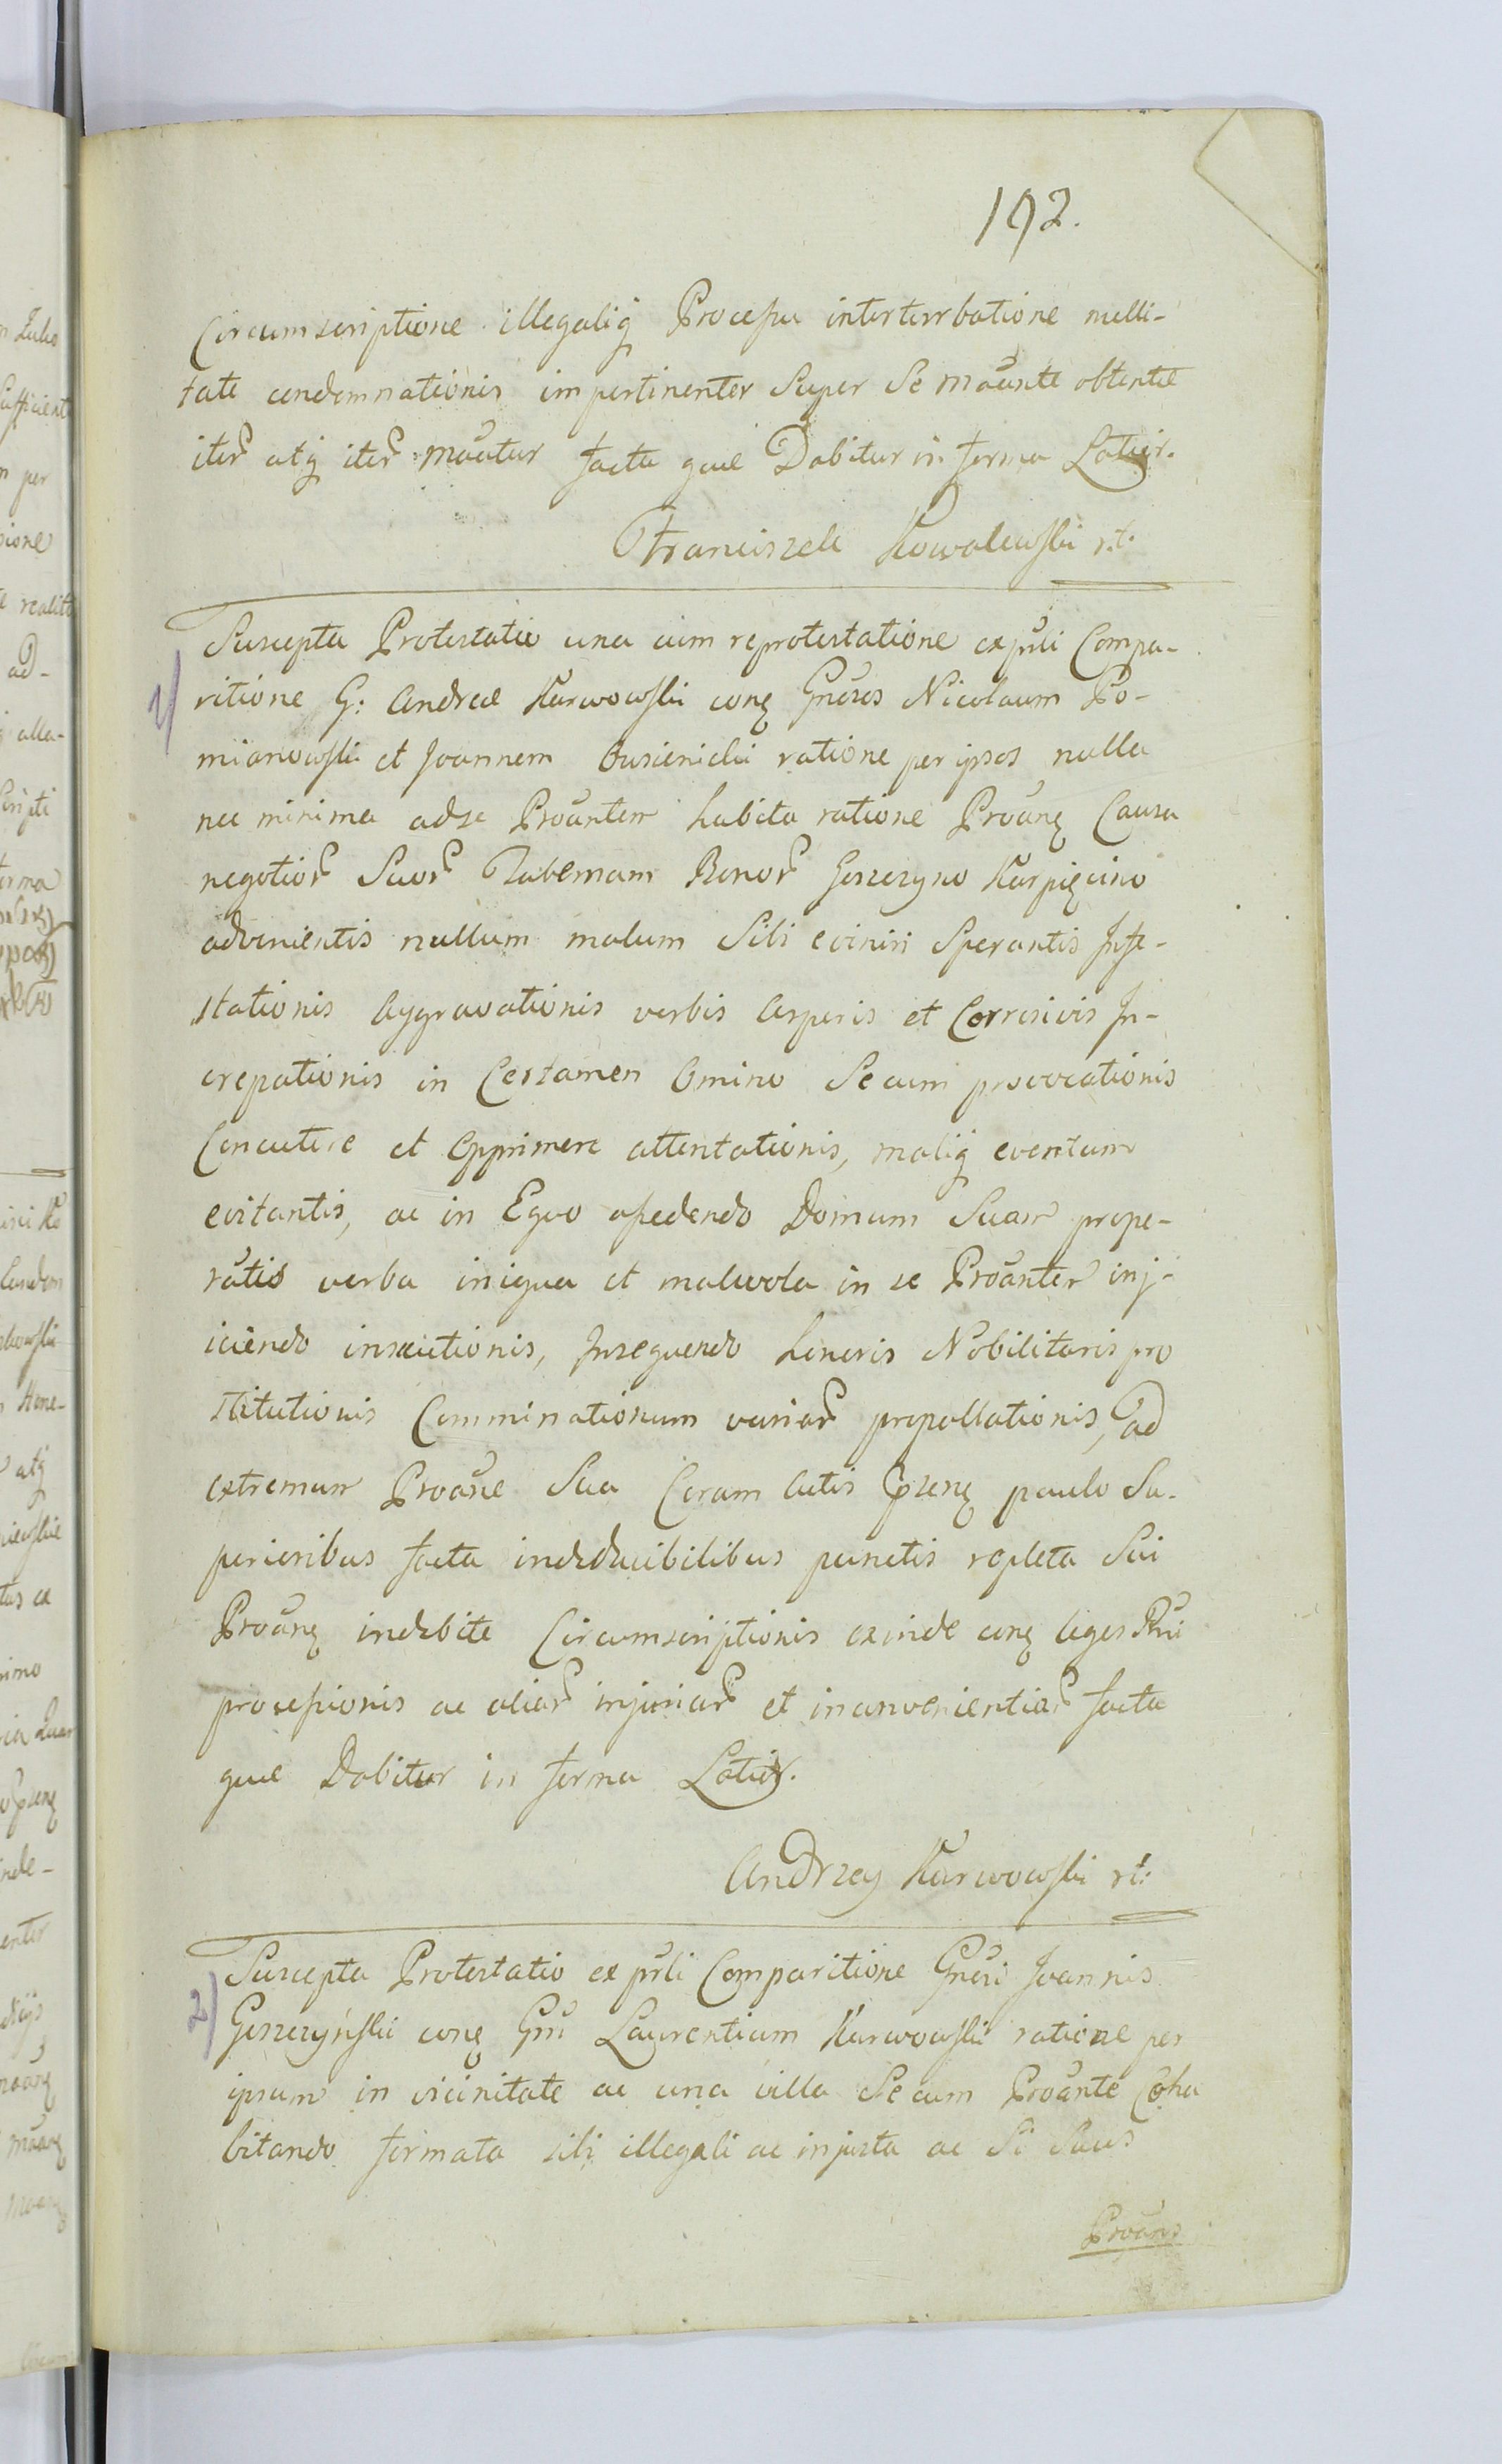 192.
Circumscriptione illegaliq Processu interturbatione nulli-
tate condemnationis impertinenter Super Se Mãnte obtentæ
iter̃ atq iter̃ Mãntur facta quæ Dabitur in forma Latior.
Franciszek Kowalewski r.t.
Suscepta Protestatio una cum reprotestatione ex pñli Compa-
1/
ritione G: Andreæ Karwowski conq Gñosos Nicolaum Po-
mianowski et Joannem Gusienicki ratione per ipsos nulla
nec minima ad se Proãntem habita ratione Proãnq Causa
negotior̃ Suor̃ Tabernam Bonor̃ Goszczyno Karpięcino
advenientis nullum malum Sibi eveniri Sperantis Infe-
stationis Aggravationis verbis Asperis et Corrosivis In-
crepationis in Certamen Omino Secum provocationis
Concutere et Opprimere attentationis, maliq eventum
evitantis, ac in Equo assedendo Domum Suam prope-
rãtis verba iniqua et malevola in se Proãntem inj-
iciendo insecutionis, Insequendo honoris Nobilitaris pro
stitutionis Comminationum variar̃ propallationis, ad
extremum Proãne Sua Coram Actis Psenq paulo Su-
perioribus facta indeducibilibus punctis repleta Sui
Proãnq indebite Circumscriptionis exinde conq leges Rñi
processionis ac aliar̃ injuriar̃ et inconvenientiar̃ facta
quæ Dabitur in forma Latior.
Andrzey Karwowski rt:
Suscepta Protestatio ex pñli Comparitione Gñosi Joannis
2/
Goszczyński conq Gm̃ Laurentium Karwowski ratione per
ipsum in vicinitate ac una villa Secum Proãnte Coha
bitando formata sibi illegali ac injusta ac Si Suus
Proãns